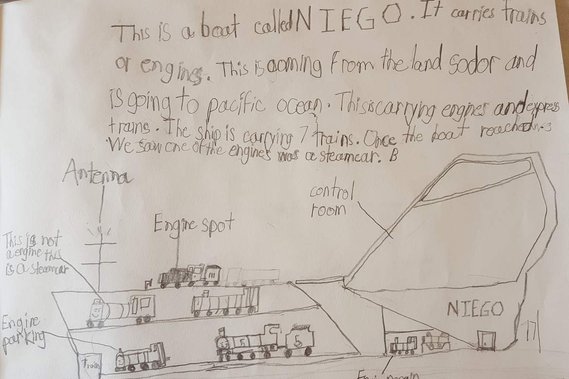 This is a boat called NIEGO. It carries trains
or engines. This is coming from the land sodor and
is going to pacific ocean. This is carrying engines and express
trains. The ship is carrying 7 trains. Once the boat reached..
We saw one of the engines was a steamcar. B
Antenna
control
room
Engine spot
This is not
a engine this
is a steamcar
NIEGO
Engine
parking
5
5
Train